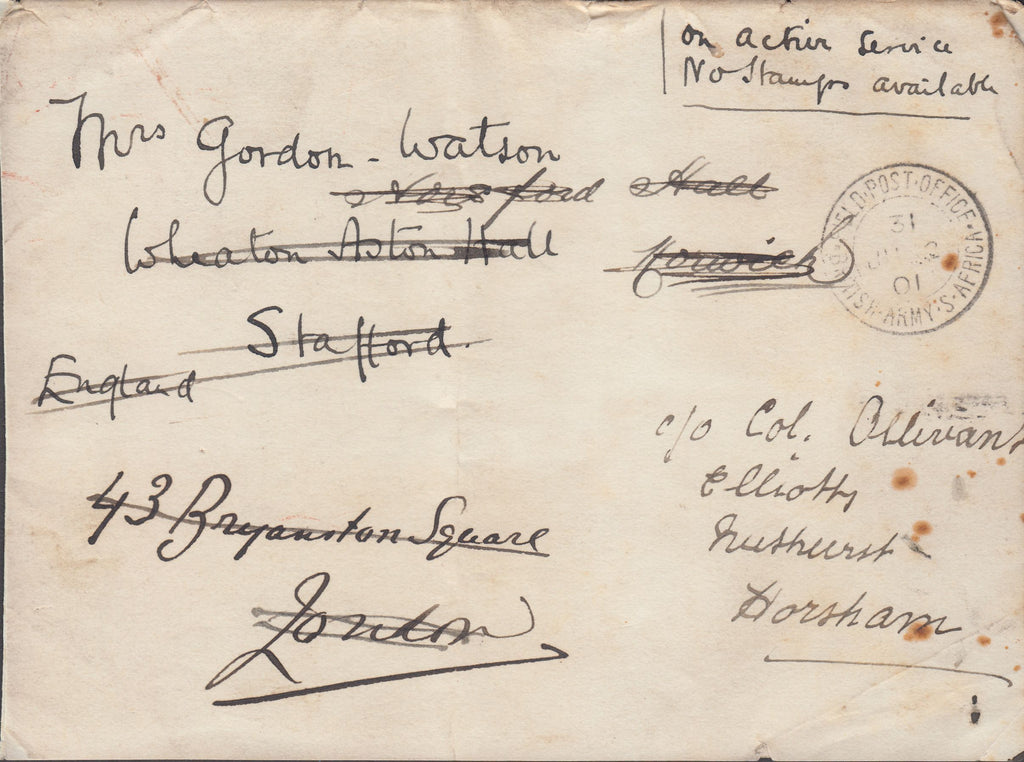 on active service
No Stamps available
Mrs Gordon-Watson
Hall
Wheaton Aston Hall
Norwich
Stafford.
England
FIELD·POST·OFFICE·
BRITISH·ARMY·S·AFRICA
31
01
c/o Col. Ollivant
Elliotts
Nuthurst
Horsham
43 Bryanston Square
London